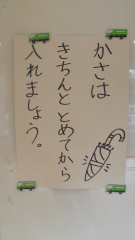 かさは
きちんととめてから
入れましょう。